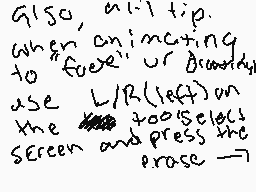 also, a lil tip.
when animating
to "face" ur Drawings
use L/R (left) on
the too select
screen and press the
erase →